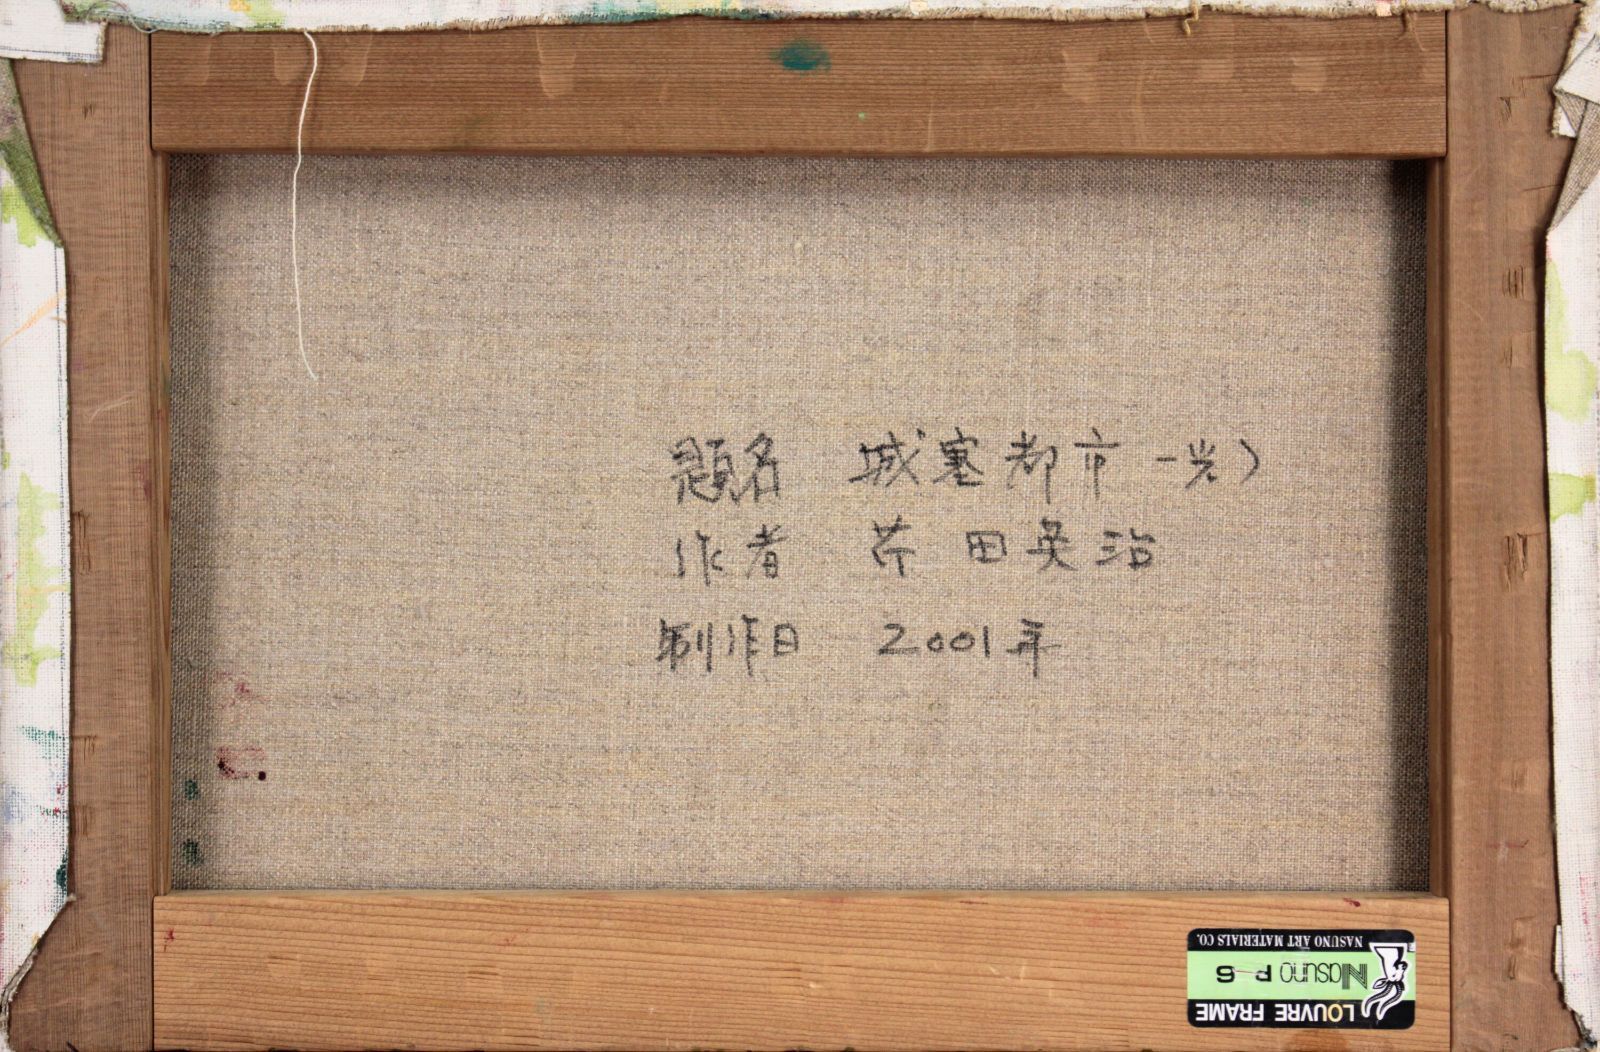 題名 城塞都市(光)
作者 芹田英治
制作日 2001年
LOUVRE FRAME
Nasuno P 6
NASUNO ART MATERIALS CO.